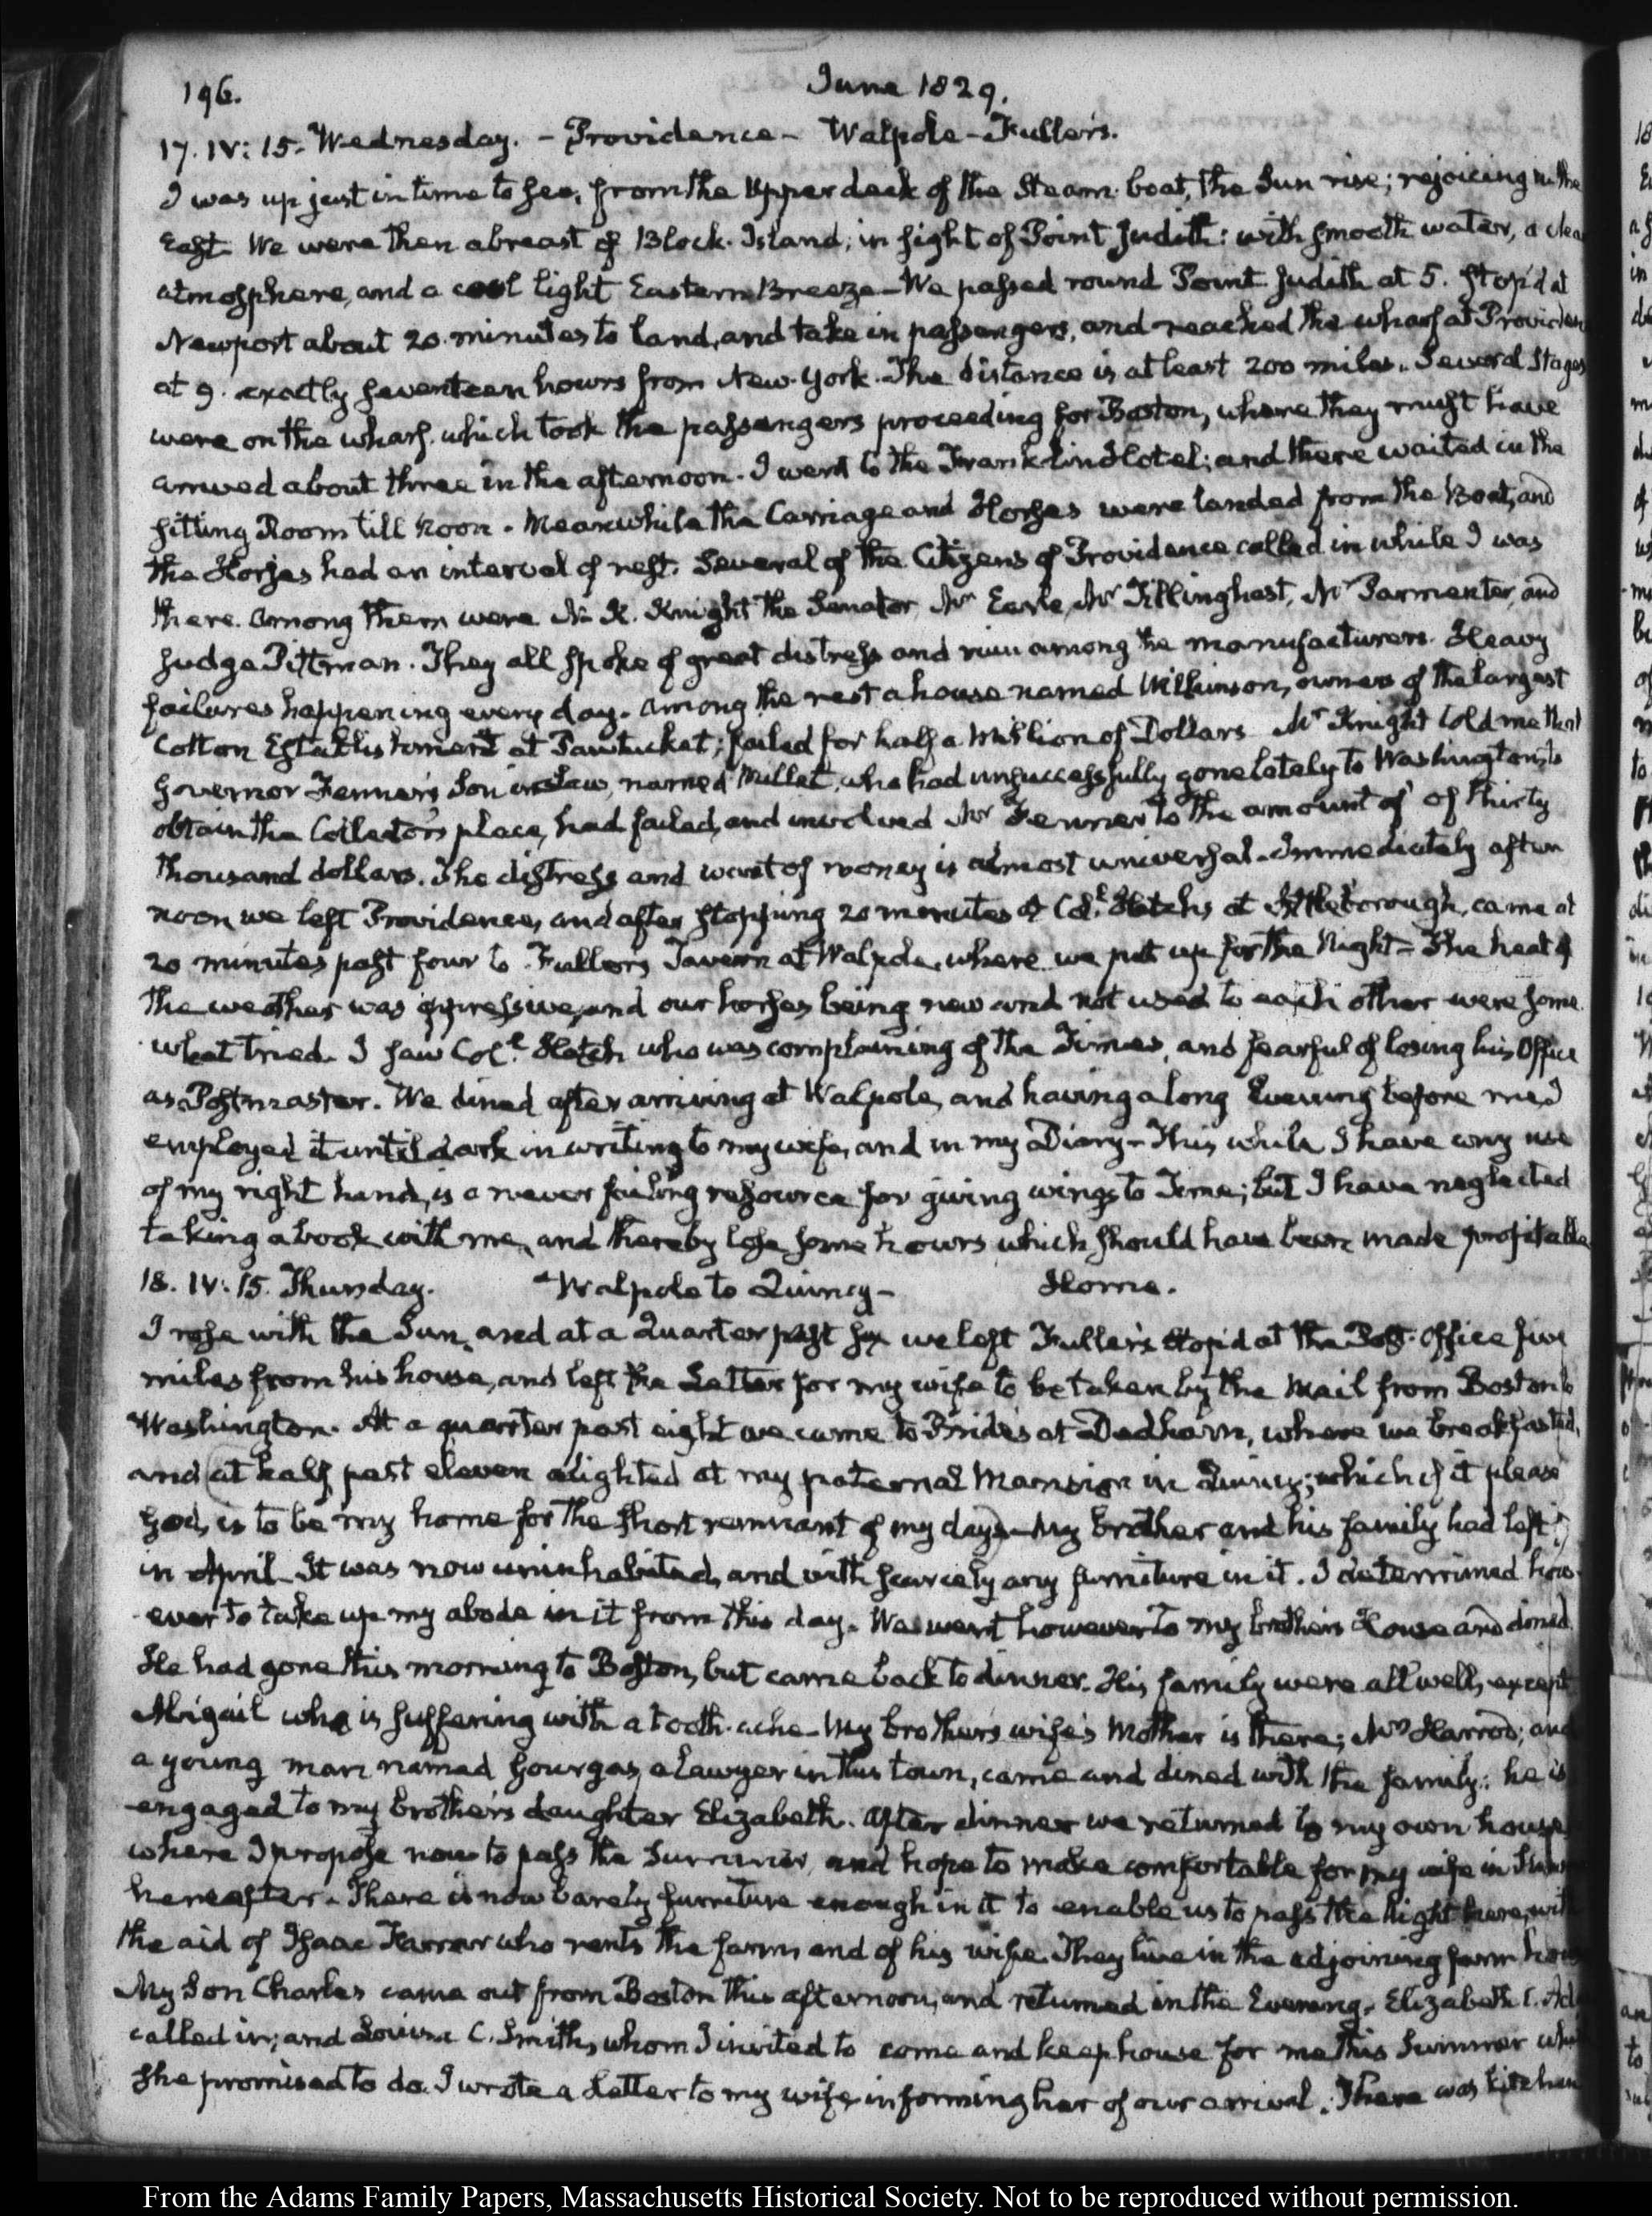 196.
June 1829.
17. IV: 15. Wednesday. - Providence - Walpole - Fuller's.
I was up just in time to see, from the Upper deck of the Steam-boat, the Sun rise; rejoicing in the
East. We were then abreast of Block-Island; in sight of Point Judith: with smooth water, a clea
atmosphere, and a cool light Eastern Breeze - We passed round Point Judith at 5. Stop'd at
Newport about 20 minutes to land, and take in passengers, and reached the wharf at Providen
at 9. exactly seventeen hours from New-York. The distance is at least 200 miles. Several Stages
were on the wharf, which took the passengers proceeding for Boston, where they must have
arrived about three in the afternoon. I went to the Franklin Hotel; and there waited in the
sitting Room till Noon. Meanwhile the Carriage and Horses were landed from the Boat, and
the Horses had an interval of rest. Several of the Citizens of Providence called in while I was
there. Among them were N. R. Knight the Senator, Mr Earle, Mr Tillinghast, Mr Parmenter, and
Judge Pittman. They all spoke of great distress and ruin among the manufacturers. Heavy
failures happening every day. Among the rest a house named Wilkinson, owners of the largest
Cotton Establishment at Pawtucket; failed for half a Million of Dollars. Mr Knight told me that
Governor Fenner's Son in Law, named Mallet, who had unsuccessfully gone lately to Washington, to
obtain the Collector's place, had failed, and involved Mr Fenner to the amount of of thirty
thousand dollars. The distress and want of money is almost universal. Immediately after
noon we left Providence, and after stopping 20 minutes at Coll. Hatch's at Attleborough, came at
20 minutes past four to Fuller's Tavern at Walpole, where we put up for the Night - The heat of
the weather was oppressive, and our horses being new and not used to each other were some
what tried. I saw Coll. Hatch who was complaining of the Times, and fearful of losing his Office
as Postmaster. We dined after arriving at Walpole, and having a long Evening before me I
employed it until dark in writing to my wife, and in my Diary - This while I have any use
of my right hand, is a never failing resource for giving wings to Time; but I have neglected
taking a book with me, and thereby lose some hours which should have been made profitable
18. IV: 15. Thursday. - Walpole to Quincy - Home.
I rose with the Sun, and at a Quarter past six we left Fuller's stop'd at the Post-Office five
miles from his house, and left the Letter for my wife to be taken by the Mail from Boston to
Washington. At a quarter past eight we came to Bride's at Dedham, where we breakfasted,
and at half past eleven alighted at my paternal Mansion in Quincy; which if it please
God, is to be my home for the short remnant of my days - My brother and his family had left it
in April. It was now uninhabited, and with scarcely any furniture in it. I determined how-
ever to take up my abode in it from this day. We went however to my brother's House and dined.
He had gone this morning to Boston, but came back to dinner. His family were all well, except
Abigail who is suffering with a tooth-ache - My brother's wife's Mother is there; Mrs Harrod; and
a young man named Gourgas, a Lawyer in this town, came and dined with the family: he is
engaged to my brother's daughter Elizabeth. After dinner we returned to my own house
where I propose now to pass the Summer, and hope to make comfortable for my wife in
hereafter. There is now barely furniture enough in it to enable us to pass the night here, with
the aid of Isaac Farrar who rents the farm and of his wife. They live in the adjoining farm hou
My Son Charles came out from Boston this afternoon, and returned in the Evening. Elizabeth C. Ad
called in; and Louisa C. Smith, whom I invited to come and keep house for me this Summer whi
she promised to do. I wrote a Letter to my wife informing her of our arrival. There was kitchen
From the Adams Family Papers, Massachusetts Historical Society. Not to be reproduced without permission.